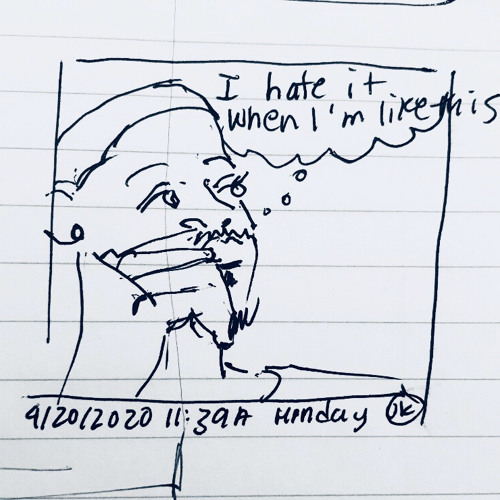 I hate it
when I'm like this
4/20/2020 11:39A Monday JK